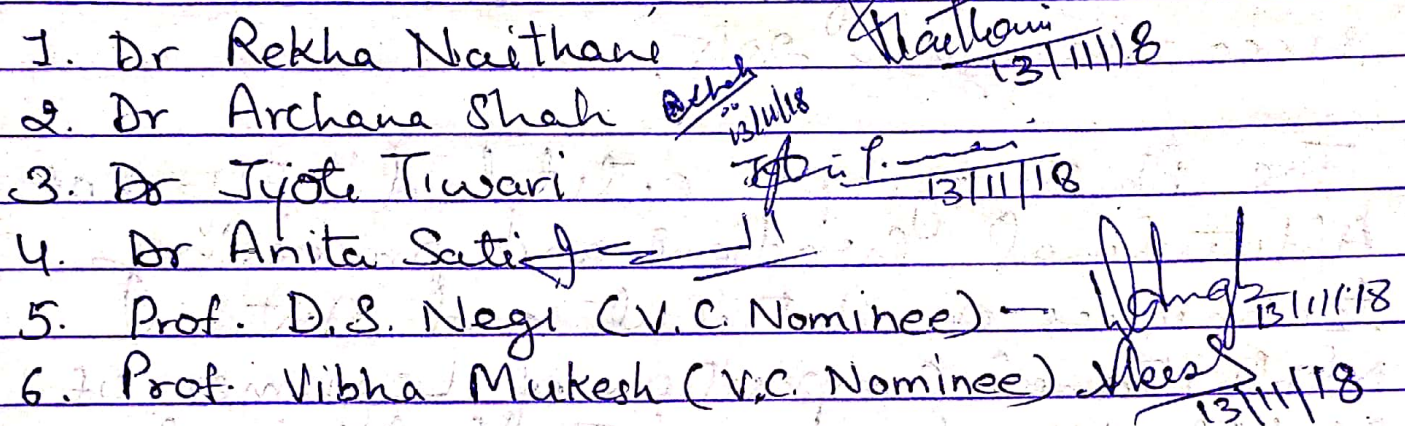 1. Dr Rekha Naithani 13/11/18
2. Dr Archana Shah 13/11/18
3. Dr Jyoti Tiwari 13/11/18
4. Dr Anita Sati
5. Prof. D.S. Negi (V.C. Nominee) - 13/11/18
6. Prof. Vibha Mukesh (V.C. Nominee) 13/11/18